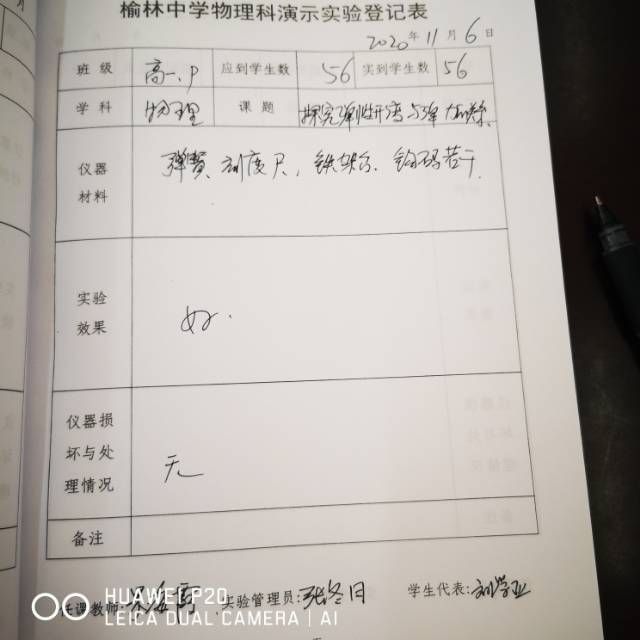 榆林中学物理科演示实验登记表
2020年11月6日
班级 高一. 应到学生数 56 实到学生数 56
学科 物理 课题 探究弹性形变与弹力的关系.
仪器材料 弹簧、刻度尺,铁架台、钩码若干.
实验效果 好.
仪器损坏与处理情况 无
备注
任课教师: 实验管理员:张冬日 学生代表:刘学亚
HUAWEI P20
LEICA DUAL CAMERA | AI